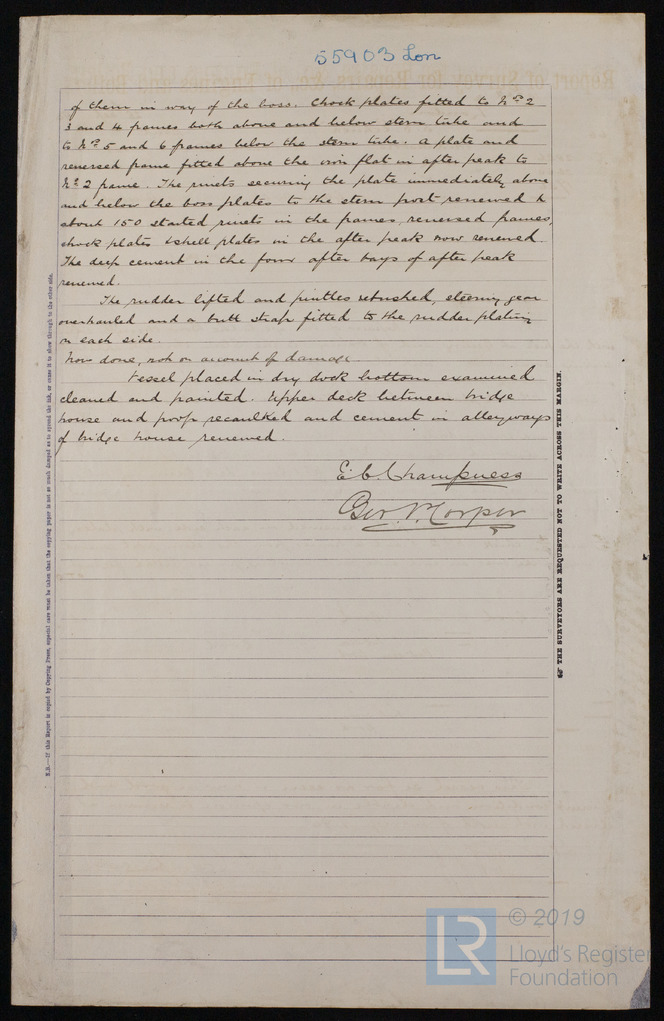 55903 Lon
of them in way of the boss. Chock plates fitted to Nos 2
3 and 4 frames both above and below stern tube and
to Nos 5 and 6 frames below the stern tube. A plate and
reversed frame fitted above the iron flat in after peak to
No 2 frame. The rivets securing the plate immediately above
and below the boss plates to the stern post renewed &
about 150 started rivets in the frames, reversed frames,
chock plates & shell plates in the after peak now renewed.
The deep cement in the four after bays of after peak
renewed.
The rudder lifted and pintles rebushed, steering gear
overhauled and a butt strap fitted to the rudder plating
on each side.
Now done, not on account of damage
Vessel placed in dry dock bottom examined
cleaned and painted. Upper deck between bridge
house and poop recaulked and cement in alleyways
of bridge house renewed.
E. C. Champness
Geo. Corper
N.B.—If this Report is copied by Copying Press, especial care must be taken that the copying paper is not so much damped as to spread the ink, or cause it to show through to the other side.
☞ THE SURVEYORS ARE REQUESTED NOT TO WRITE ACROSS THIS MARGIN.
LR
© 2019
Lloyd's Register
Foundation